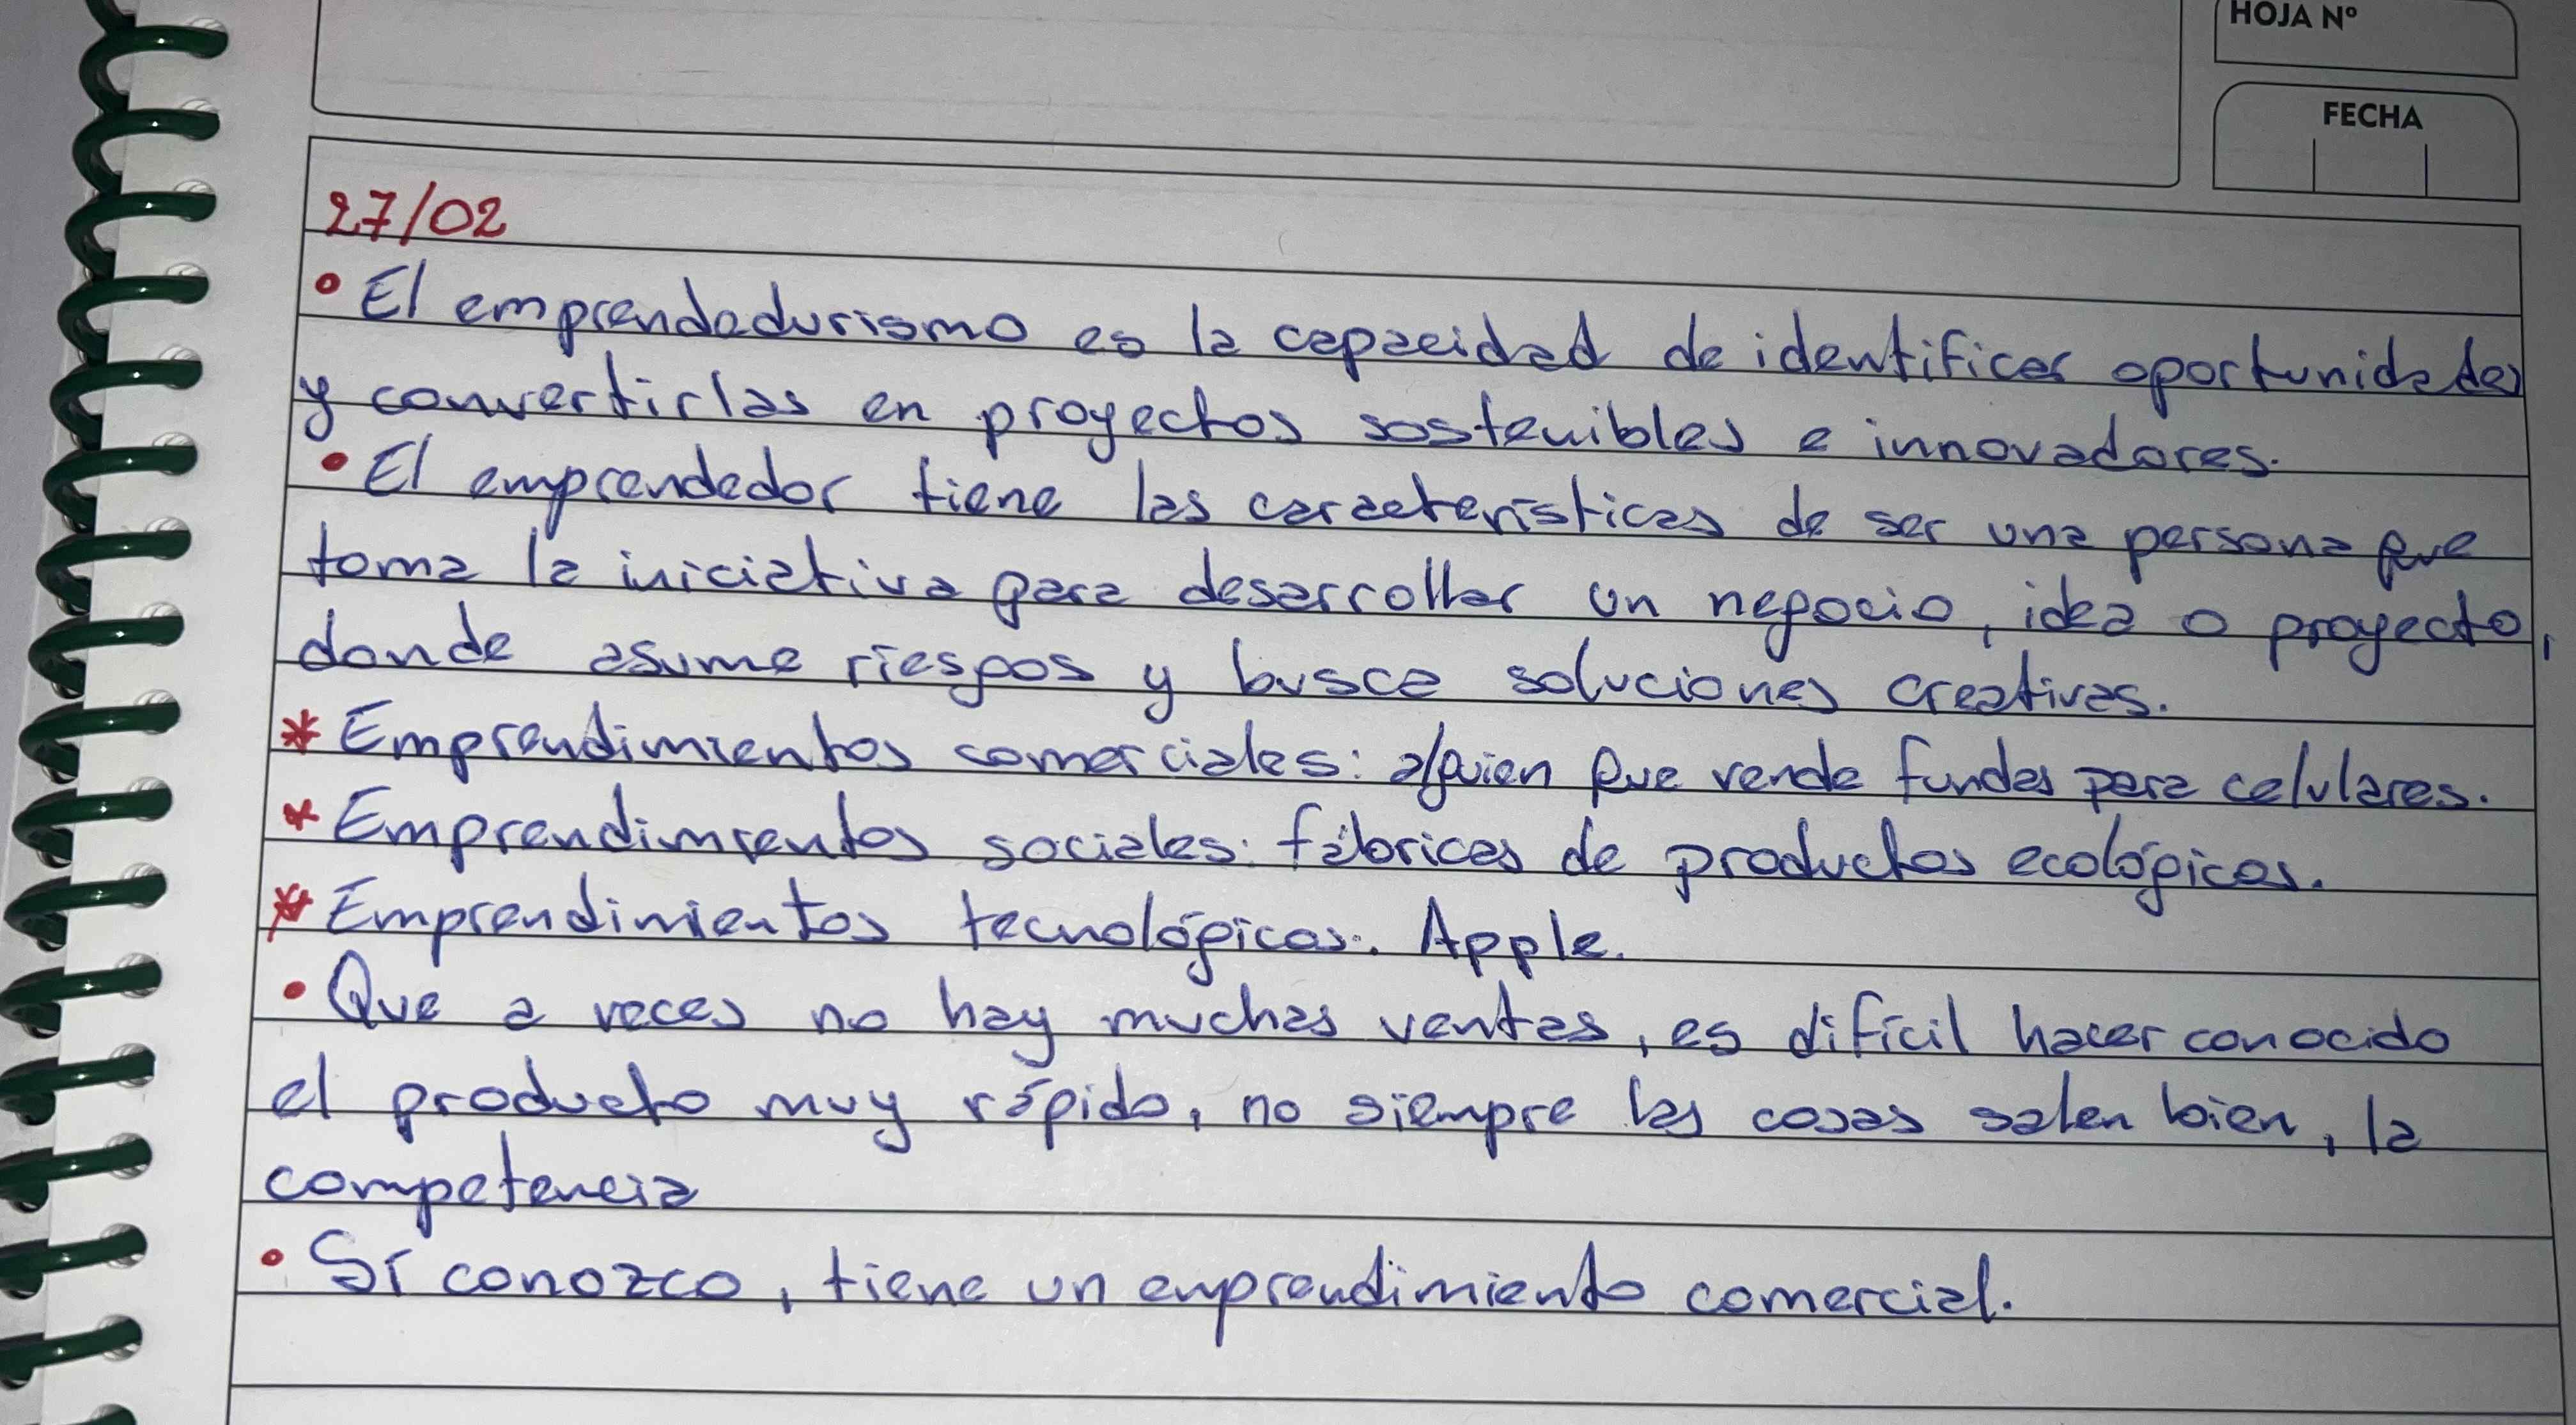 HOJA Nº
FECHA
27/02
• El emprendedurismo es la capacidad de identificar oportunidades
y convertirlas en proyectos sostenibles e innovadores.
• El emprendedor tiene las características de ser una persona que
toma la iniciativa para desarrollar un negocio, idea o proyecto,
donde asume riesgos y busca soluciones creativas.
* Emprendimientos comerciales: alguien que vende fundas para celulares.
* Emprendimientos sociales: fábricas de productos ecológicos.
* Emprendimientos tecnológicos: Apple.
• Que a veces no hay muchas ventas, es difícil hacer conocido
el producto muy rápido, no siempre las cosas salen bien, la
competencia
• Sí conozco, tiene un emprendimiento comercial.